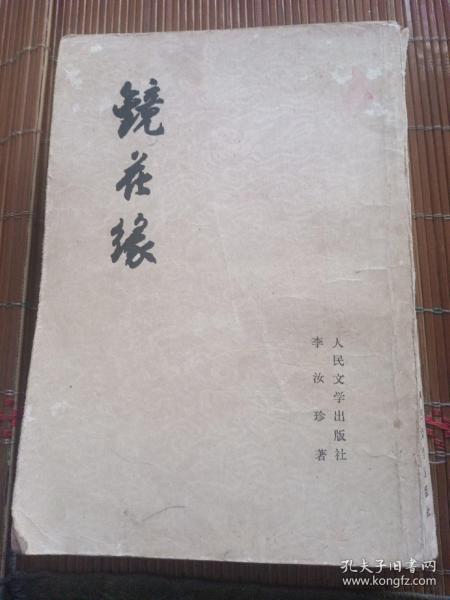 镜花缘
人民文学出版社
李汝珍著
孔夫子旧书网
www.kongfz.com